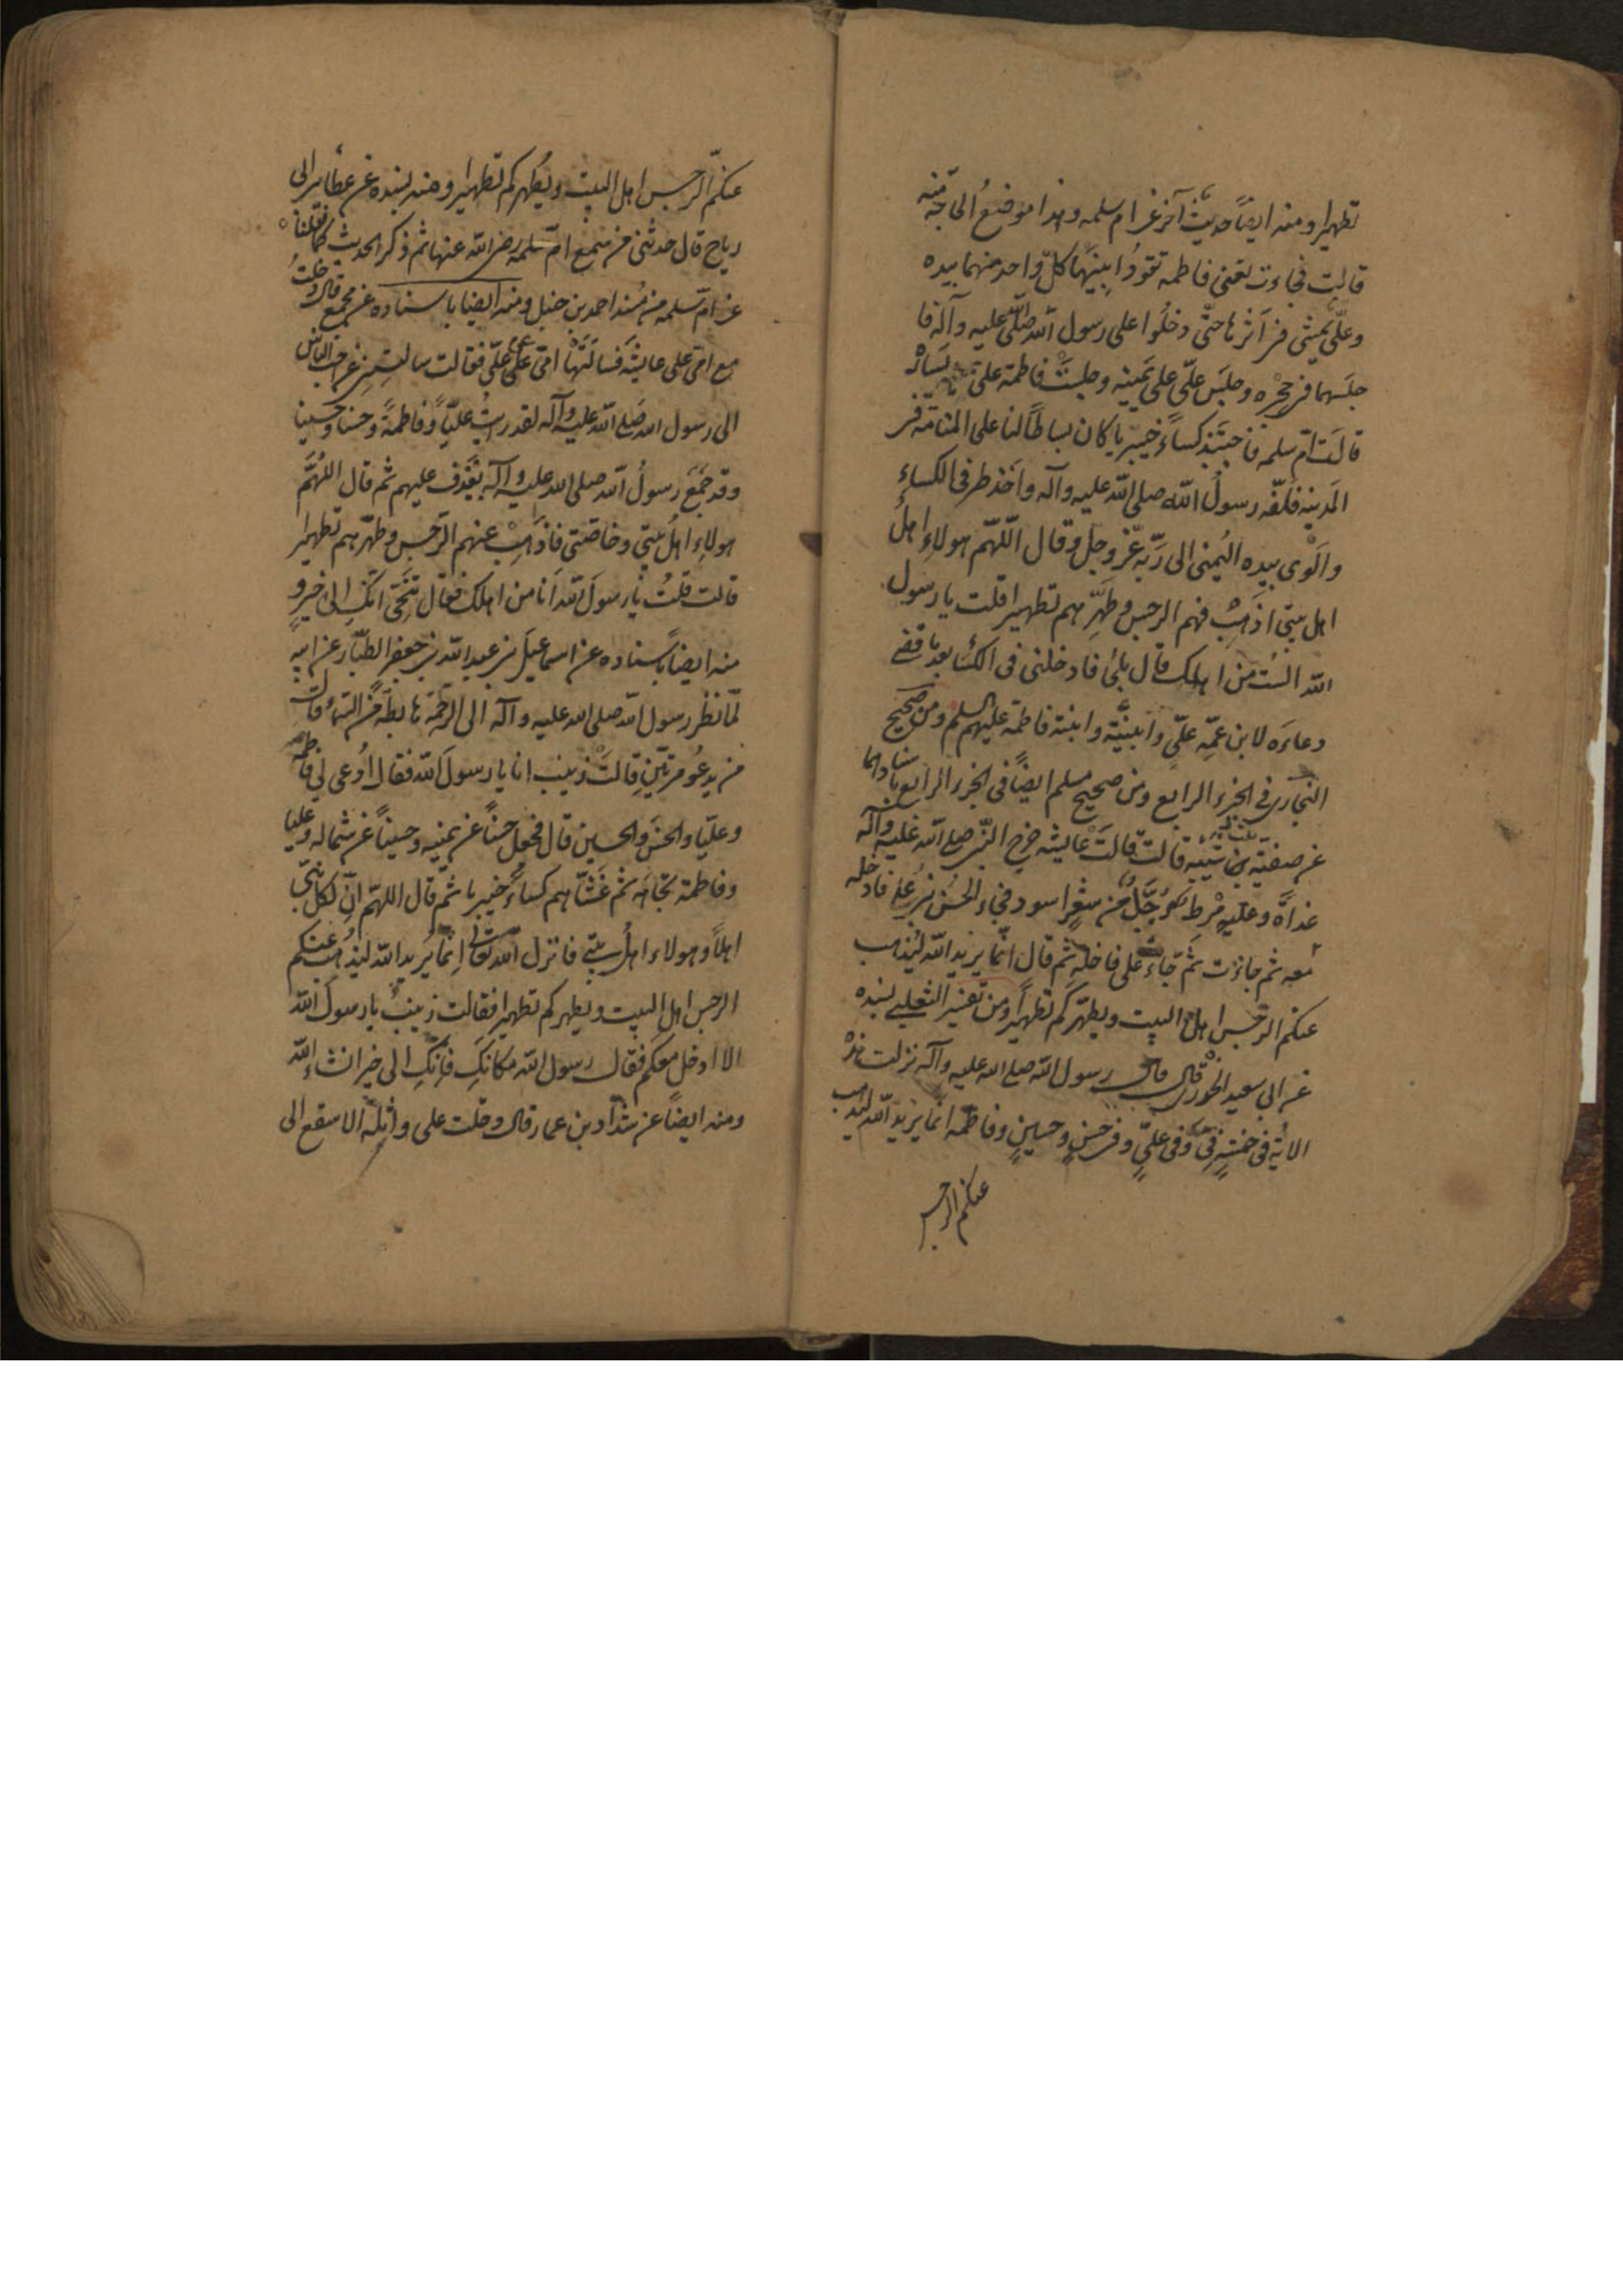 تطهيرا ومنه ايضاً حديث آخر عن ام سلمه وهذا موضع الحاجة منه
قالت فجاءت تعنى فاطمه تقود ابنيهما كلّ واحد منهما بيده
وعلّى يمشى فى اثرها حتّى دخلوا على رسول الله صلّى عليه وآله فا
جلسهما فى حجره وجلس علّى على يمينه وجلست فاطمة على يساره
قالت امّ سلمه فاجتبذ كساءً خيبريا كان بساطاً لنا على المنامة فى
المدينه فلفّه رسول الله صلى الله عليه وآله واخذ طرفى الكساء
والوى بيده اليمنى الى ربّه عزّ وجل وقال اللّهمّ هولاء اهل
اهل بيتى اذهب فهم الرجس وطهّرهم تطهيرا قلت يا رسول
الله الست من اهلك قال بلى فادخلنى فى الكساء بعد ما قضى
دعاءه لابن عمّه علّى وابنيّه وابنة فاطمة عليهم السلم ومن صحيح
البخارى فى الجزء الرابع ومن صحيح مسلم ايضاً فى الجزء الرابع باسنادهما
عن صفيّه بنت شيبه قالت قالت عايشه خرج النّبى صلى الله عليه وآله
غداة وعليه مرط مرجّل من شعر اسود فجاء الحسن بن على فادخله
معه ثم جاءت ثم جاء على فادخله ثم قال انّما يريد الله ليذهب
عنكم الرّجس اهل البيت ويطهّركم تطهيراً ومن تفسير الثعلبى بسنده
عن ابى سعيد الخدرى قال قال رسول الله صلى الله عليه وآله نزلت هذه
الاية فى خمسةٍ فىّ وفى علىٍّ وفى حسنٍ وحسينٍ وفاطمه انما يريد الله ليذهب
عنكم الرجس
عنكم الرّجس اهل البيت ويُطهركم تطهيرا ومنه بسنده عن عطا بن ابى
رياح قال حدثنى من سمع امّ سلمه رضى الله عنها ثم ذكر الحديث كما نقلناه
عن امّ سلمه من مسند احمد بن حنبل ومنه ايضا باسناده عن مجمع قال دخلتُ
مع امّى على عايشه فسالَتها امّى عن علّى فقالت سالتِنى عن احبّ الناس
الى رسول الله صلى الله عليه وآله لقد رايتُ عليّاً وفاطمةً وحسنا وحسينا
وقد جمَع رسولُ الله صلى الله عليه وآله يغدف عليهم ثم قال اللّهمّ
هولاء اهلُ بيتى وخاصّتى فاذهب عنهم الرّجس وطهّرهم تطهيرا
قالت قلتُ يا رسولَ الله انا من اهلك فقال تنحّى انّكِ الى خيرٍ و
منه ايضاً باسناده عن اسماعيل بن عبد الله بن جعفر الطيّار عن ابيه
لمّا نظر رسول الله صلى الله عليه وآله الى الرّحمة هابطة من السّماء قال
من يدعُو مرتين قالت زينب انا يا رسولَ الله فقال ادُعى لى فاطمة
وعليّا والحسن والحسين قال فجعل حسناً عن يمينه وحسيناً عن شماله وعليا
وفاطمة تجاهه ثم غشّاهم كساءً خيبريا ثم قال اللهمّ انّ لكل نبىّ
اهلاً وهولاء اهلُ بيتى فانزل الله تعالى إنّما يُريد الله ليذهب عنكم
الرجس اهل البيت ويطهركم تطهيرا فقالت زينبُ يا رسولَ الله
الا ادخل معكم فقال رسول الله مكانكِ فانّكِ الى خير انشاء الله
ومنه ايضاً عن شدّاد بن عمار قال دخلت على واثلة الاسقع الى